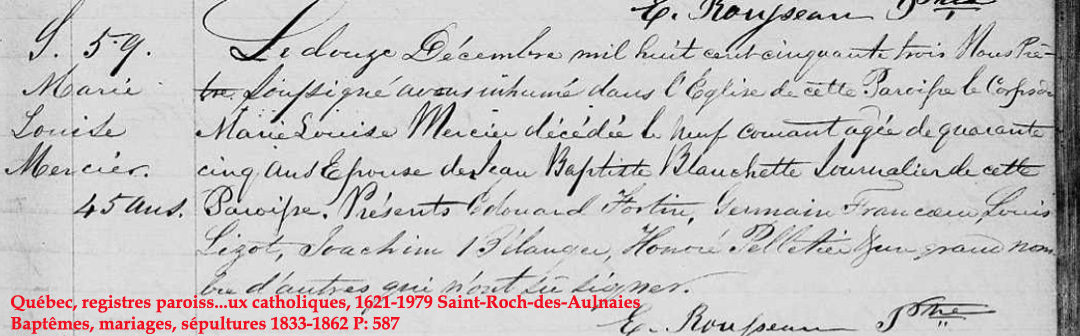 E. Rousseau Ptre
S. 59.
Marie
Louise
Mercier.
45 ans.
Le douze Décembre mil huit cent cinquante trois Nous Prê-
tre Soussigné avons inhumé dans l'Eglise de cette Paroisse le Corps de
Marie Louise Mercier décédée le neuf courant agée de quarante
cinq ans Epouse de Jean Baptiste Blanchette Journalier de cette
Paroisse. Présents Edouard Fortin, Germain Francoeur, Louis
Lizot, Joachim Bélanger, Honoré Pelletier & un grand nom
bre d'autres qui n'ont su signer.
E. Rousseau Ptre
Québec, registres paroiss...ux catholiques, 1621-1979 Saint-Roch-des-Aulnaies
Baptêmes, mariages, sépultures 1833-1862 P: 587